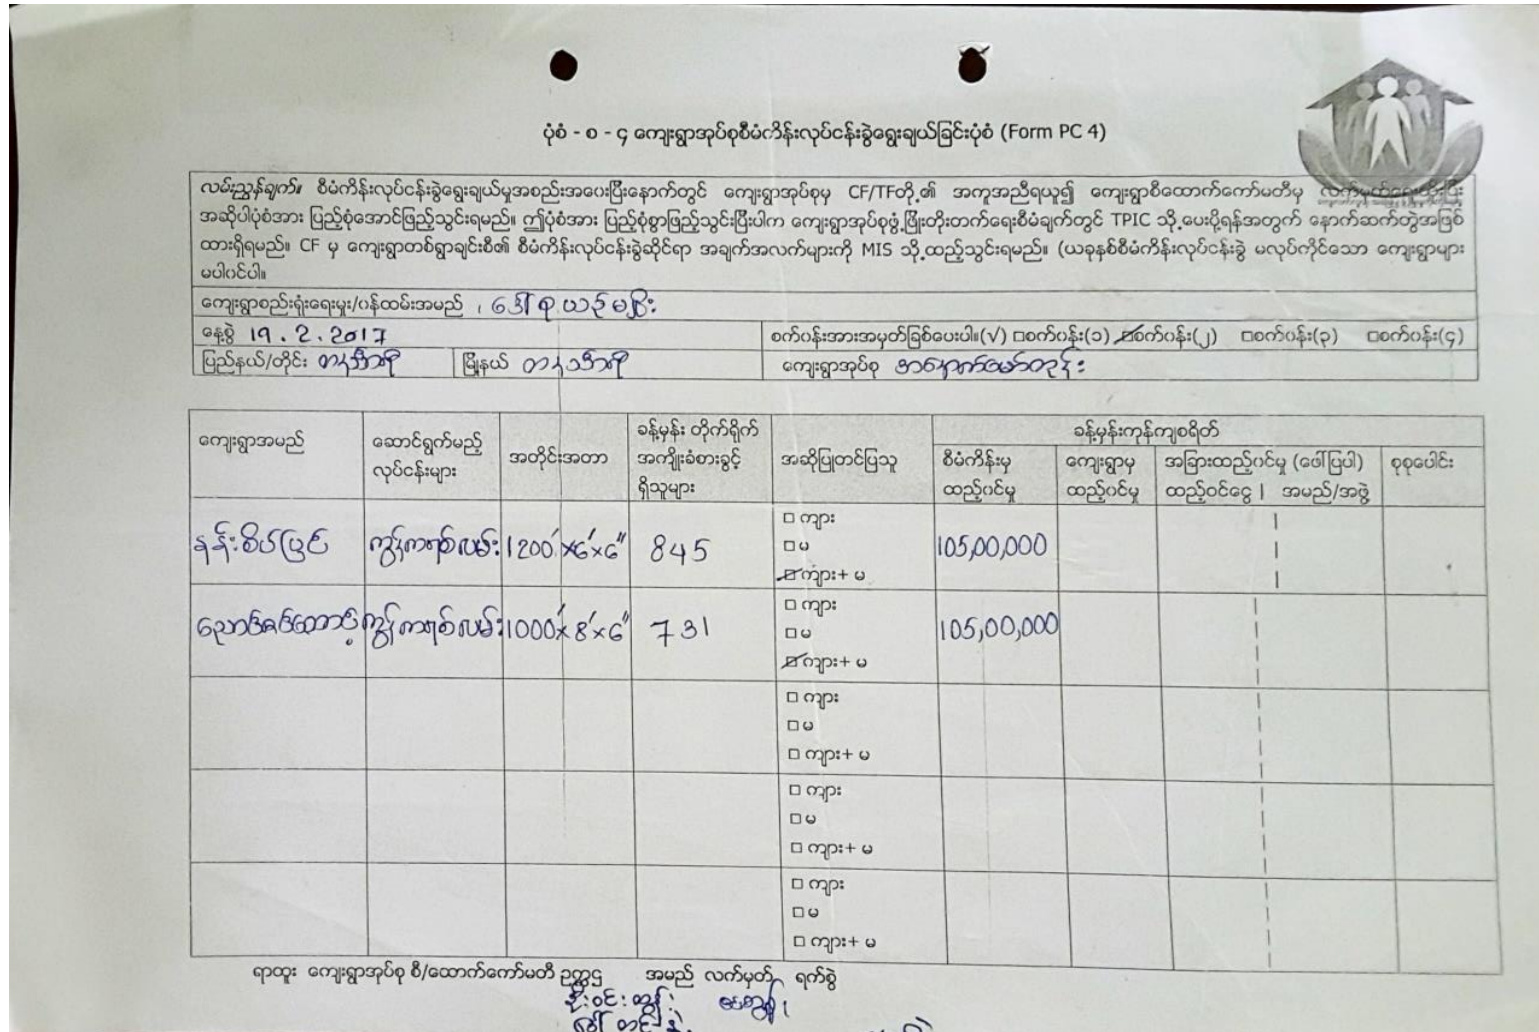 ပုံစံ - စ - ၄ ကျေးရွာအုပ်စုစီမံကိန်းလုပ်ငန်းခွဲရွေးချယ်ခြင်းပုံစံ (Form PC 4)
လမ်းညွှန်ချက်။ စီမံကိန်းလုပ်ငန်းခွဲရွေးချယ်မှုအစည်းအဝေးပြီးနောက်တွင် ကျေးရွာအုပ်စုမှ CF/TFတို့၏ အကူအညီရယူ၍ ကျေးရွာစီထောက်ကော်မတီမှ
အဆိုပါပုံစံအား ပြည့်စုံအောင်ဖြည့်သွင်းရမည်။ ဤပုံစံအား ပြည့်စုံစွာဖြည့်သွင်းပြီးပါက ကျေးရွာအုပ်စုဖွံ့ဖြိုးတိုးတက်ရေးစီမံချက်တွင် TPIC သို့ပေးပို့ရန်အတွက် နောက်ဆက်တွဲအဖြစ်
ထားရှိရမည်။ CF မှ ကျေးရွာတစ်ရွာချင်းစီ၏ စီမံကိန်းလုပ်ငန်းခွဲဆိုင်ရာ အချက်အလက်များကို MIS သို့ထည့်သွင်းရမည်။ (ယခုနှစ်စီမံကိန်းလုပ်ငန်းခွဲ မလုပ်ကိုင်သော ကျေးရွာများ
မပါဝင်ပါ။
ကျေးရွာစည်းရုံးရေးမှူး/ဝန်ထမ်းအမည်
နေ့စွဲ 19.2.2017 စက်ဝန်းအားအမှတ်ခြစ်ပေးပါ။(√) □စက်ဝန်း(၁) ☑စက်ဝန်း(၂) □စက်ဝန်း(၃) □စက်ဝန်း(၄)
ပြည်နယ်/တိုင်း တနင်္သာရီ မြို့နယ် တနင်္သာရီ ကျေးရွာအုပ်စု
ကျေးရွာအမည် ဆောင်ရွက်မည့် လုပ်ငန်းများ အတိုင်းအတာ ခန့်မှန်း တိုက်ရိုက် အကျိုးခံစားခွင့် ရှိသူများ အဆိုပြုတင်ပြသူ ခန့်မှန်းကုန်ကျစရိတ်
စီမံကိန်းမှ ထည့်ဝင်မှု ကျေးရွာမှ ထည့်ဝင်မှု အခြားထည့်ဝင်မှု (ဖော်ပြပါ) ထည့်ဝင်ငွေ | အမည်/အဖွဲ့ စုစုပေါင်း
နန်းစိပ်ပြင် ကွန်ကရစ်လမ်း 1200'×6'×6" 845 □ ကျား □ မ ☑ ကျား+ မ 105,00,000
ကွန်ကရစ်လမ်း 1000'×8'×6" 731 □ ကျား □ မ ☑ ကျား+ မ 105,00,000
□ ကျား
□ မ
□ ကျား+ မ
□ ကျား
□ မ
□ ကျား+ မ
□ ကျား
□ မ
□ ကျား+ မ
ရာထူး ကျေးရွာအုပ်စု စီ/ထောက်ကော်မတီ ဥက္ကဌ အမည် လက်မှတ် ရက်စွဲ
ဦးဝင်းထွန်း